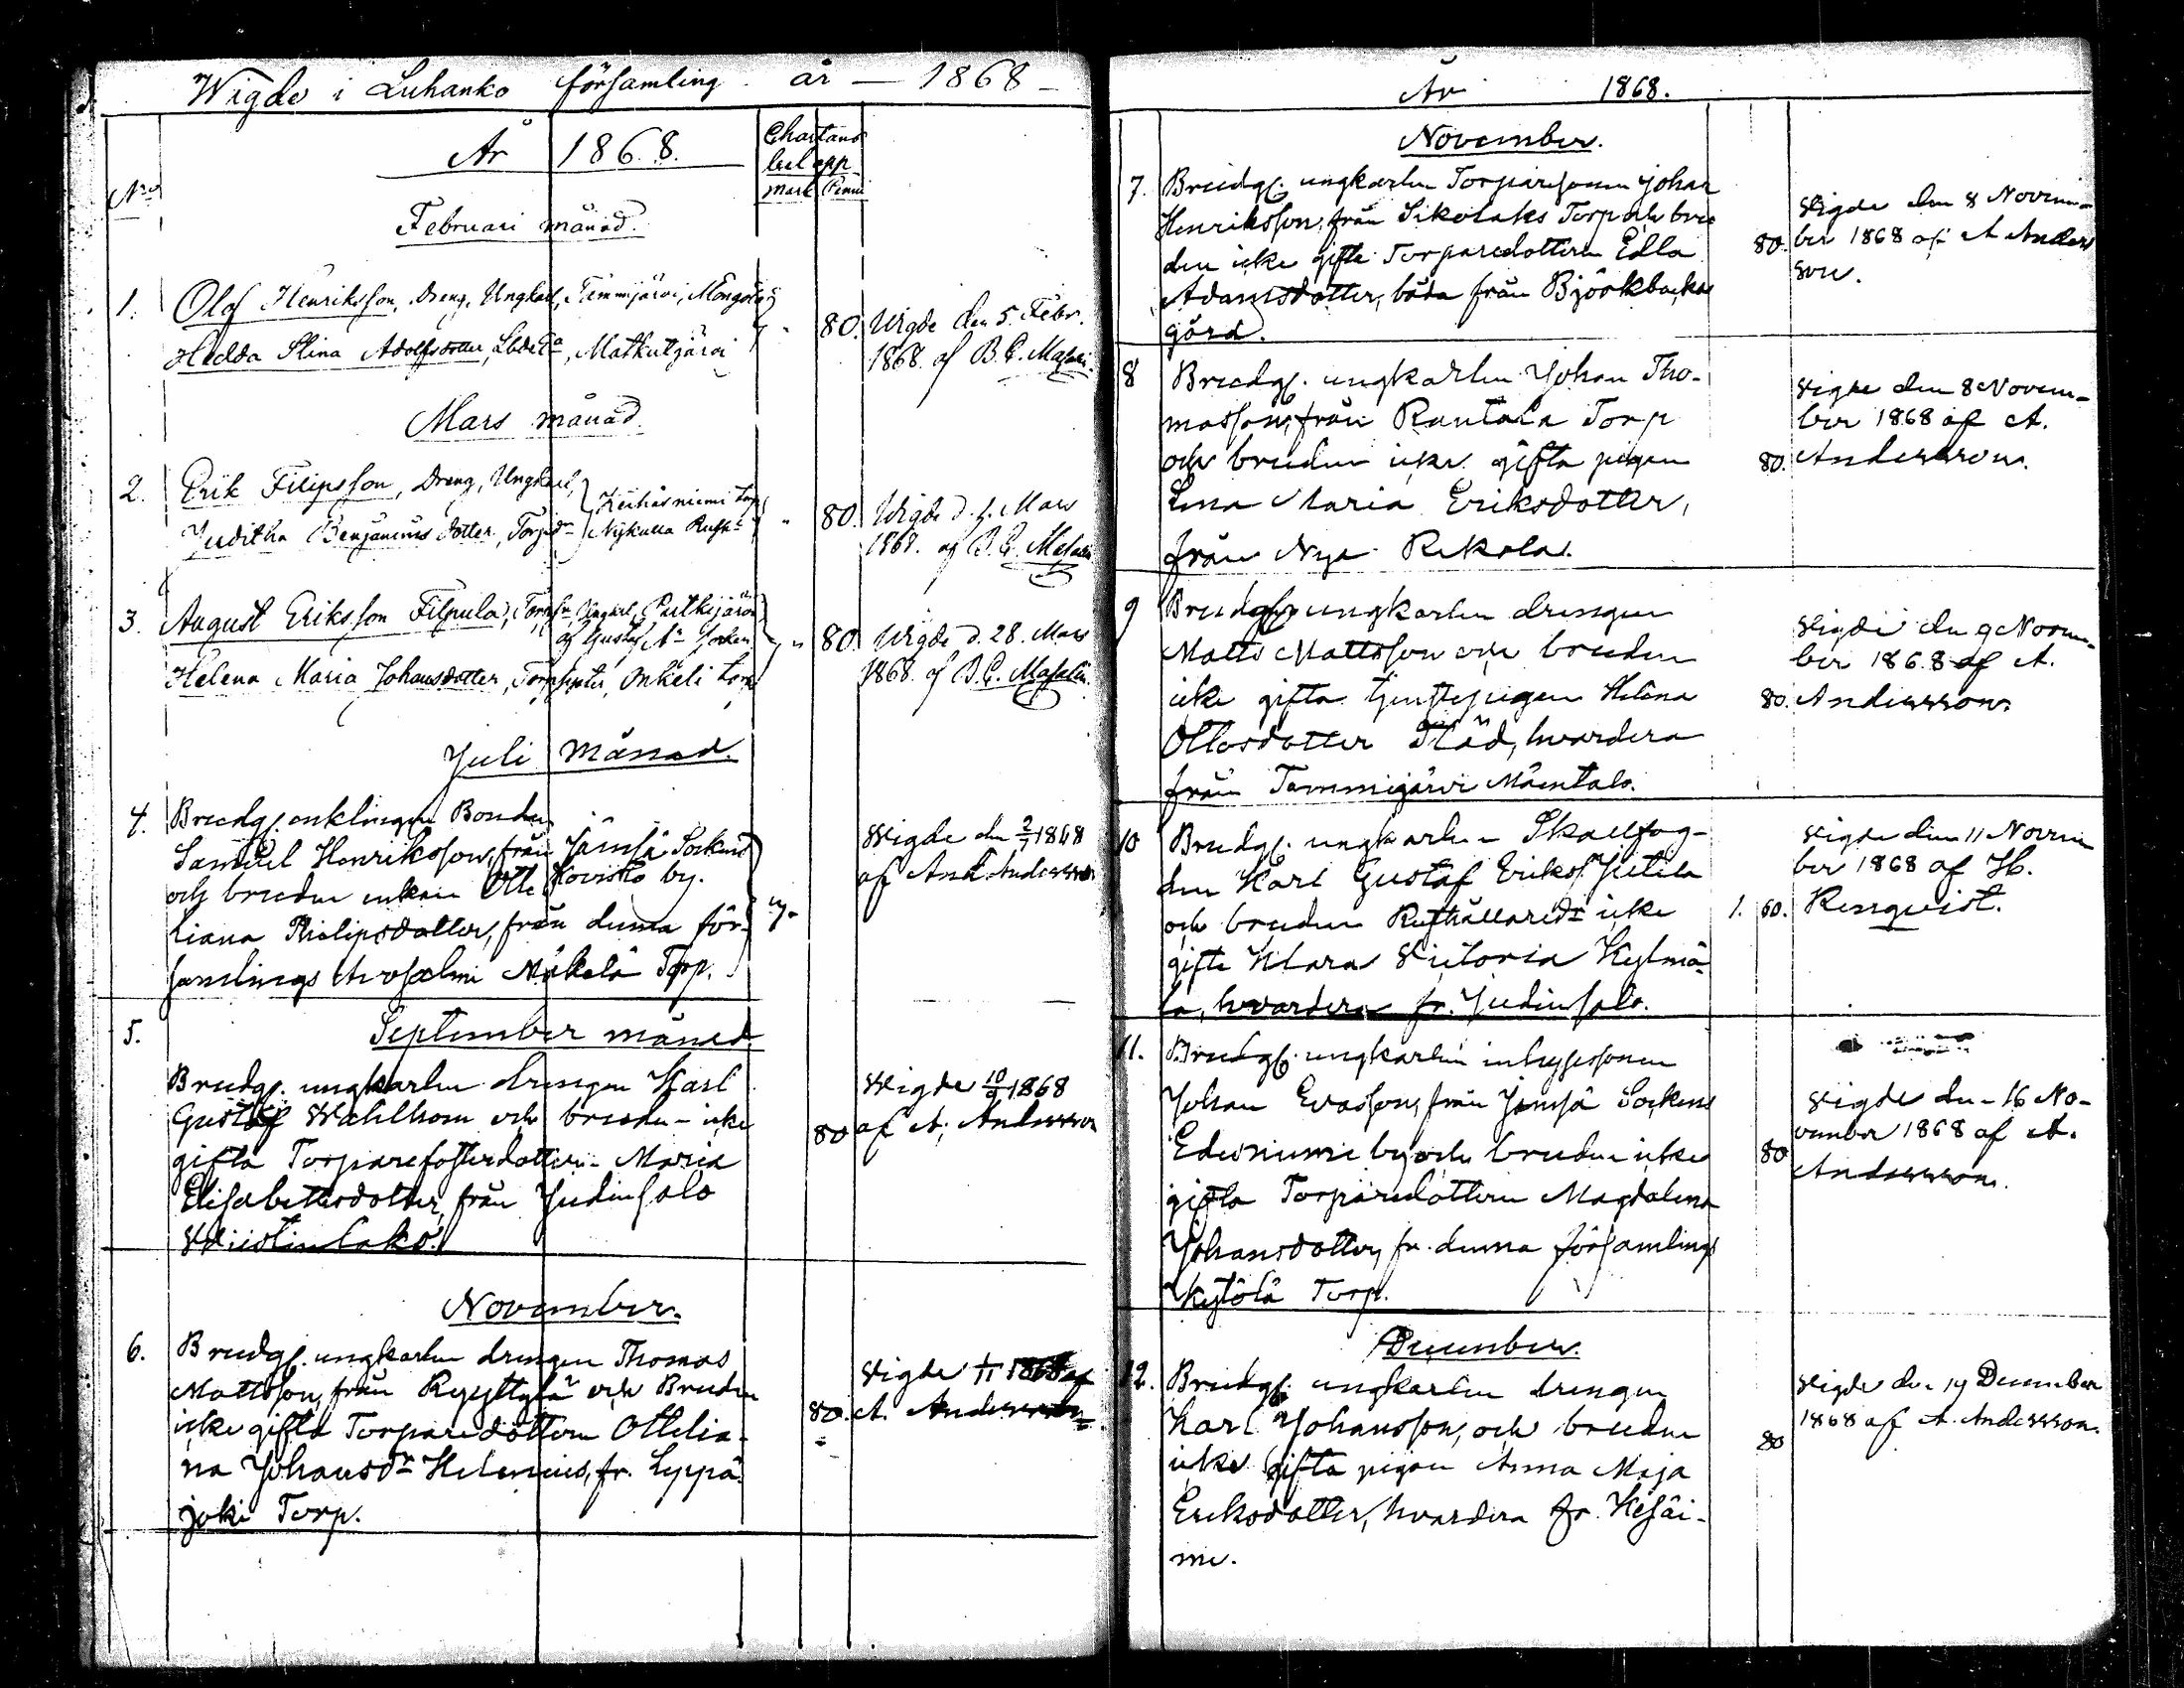 Wigde i Luhanko församling år — 1868 —
År 1868.
Chartans
bel opp
mark Penni
No
Februari månad.
1. Olof Henriksson, Dreng, Ungkarl, Tammijärvi,
Hedda Stina Adolfsdotter, Matkutjärvi
80. Wigde den 5. Febr.
1868. af B. G. Masalin.
Mars månad.
2. Erik Filipsson, Dreng, Ungkarl,
Juditha Benjaminsdotter,
80. Wigde d. Mars
1868. af B. G. Masalin
3. August Eriksson Filpula, Ungkarl,
Helena Maria Johansdotter, Onkeli torp
80. Wigde d. 28. Mars
1868. af B. G. Masalin.
Juli Månad.
4. Brudg. enklingen Bonden
Samuel Henriksson, från Jämsä Sockens
och bruden enkan Otte Kovisto by.
liana Philipsdotter, från denna för-
samlings Mäkelä Torp.
Vigde den 2/7 1868
af And. Andersson
5. September månad.
Brudg. ungkarlen drengen Karl
Gustaf Wahlbom och bruden icke
gifta Torparefosterdottern Maria
Elisabethsdotter, från Judinsalo
80 Vigde 10/9 1868
af A. Andersson
November.
6. Brudg. ungkarlen drengen Thomas
Mattsson, från och Bruden
icke gifta Torparedottern Ottilia-
na Johansdr Helenius, fr. Leppä-
joki Torp.
80. Vigde 1/11 1868 af
A. Andersson
År 1868.
November.
7. Brudg. ungkarlen Torparesonen Johan
Henriksson, från Torp och bru
den icke gifte Torparedottern Edla
Adamsdotter, båda från Björkbacka
gård.
80. Vigde den 8 Novem-
ber 1868 af A Anders
son.
8 Brudg. ungkarlen Johan Tho-
masson, från Rantala Torp
och bruden icke gifta pigan
Lena Maria Eriksdotter,
från Nya Rekola.
80. Vigde den 8 Novem-
ber 1868 af A.
Andersson.
9 Brudg. ungkarlen drengen
Matts Mattsson och bruden
icke gifta tjenstepigan Helena
Ottosdotter Städ, hvardera
från Tammijärvi Mäentalo.
80. Vigde den 9 Novem-
ber 1868 af A.
Andersson.
10 Brudg. ungkarlen Skallfog-
den Karl Gustaf Erikss. Jutila
och bruden Rusthållaredr icke
gifte Klara Victoria Kylmä-
lä, hvardera fr. Judinsalo.
1. 60. Vigde den 11 Novem
ber 1868 af H.
Renqvist.
11. Brudg. ungkarlen inhysessonen
Johan Evasson, från Jemsä Sockens
Edesniemi by och bruden icke
gifta Torparedottern Magdalena
Johansdotter, fr. denna församlings
Kytölä Torp.
80 Vigde den 16 No-
vember 1868 af A.
Andersson.
December.
12. Brudg. ungkarlen drengen
Karl Johansson, och bruden
icke gifta pigan Anna Maja
Eriksdotter, hvardera fr. Hesäi-
me.
80 Vigde den 19 December
1868 af A. Andersson.